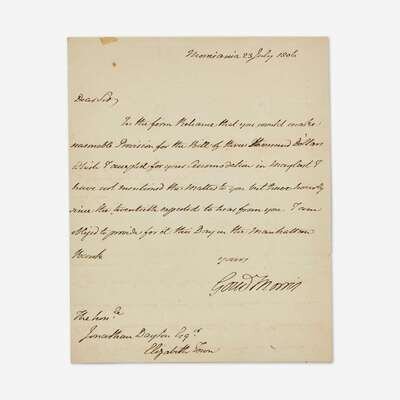 Morrisania 23 July 1806
Dear Sir,
In the firm Reliance that you would make
reasonable Provision for the Bill of three thousand Dollars
which I accepted for your Accommodation in May last I
have not mentioned the Matter to you but have
since the twentieth expected to hear from you. I am
obliged to provide for it this Day in the Manhattan
yours
Gouv Morris
The Honble
Jonathan Dayton Esqr
Elizabeth Town